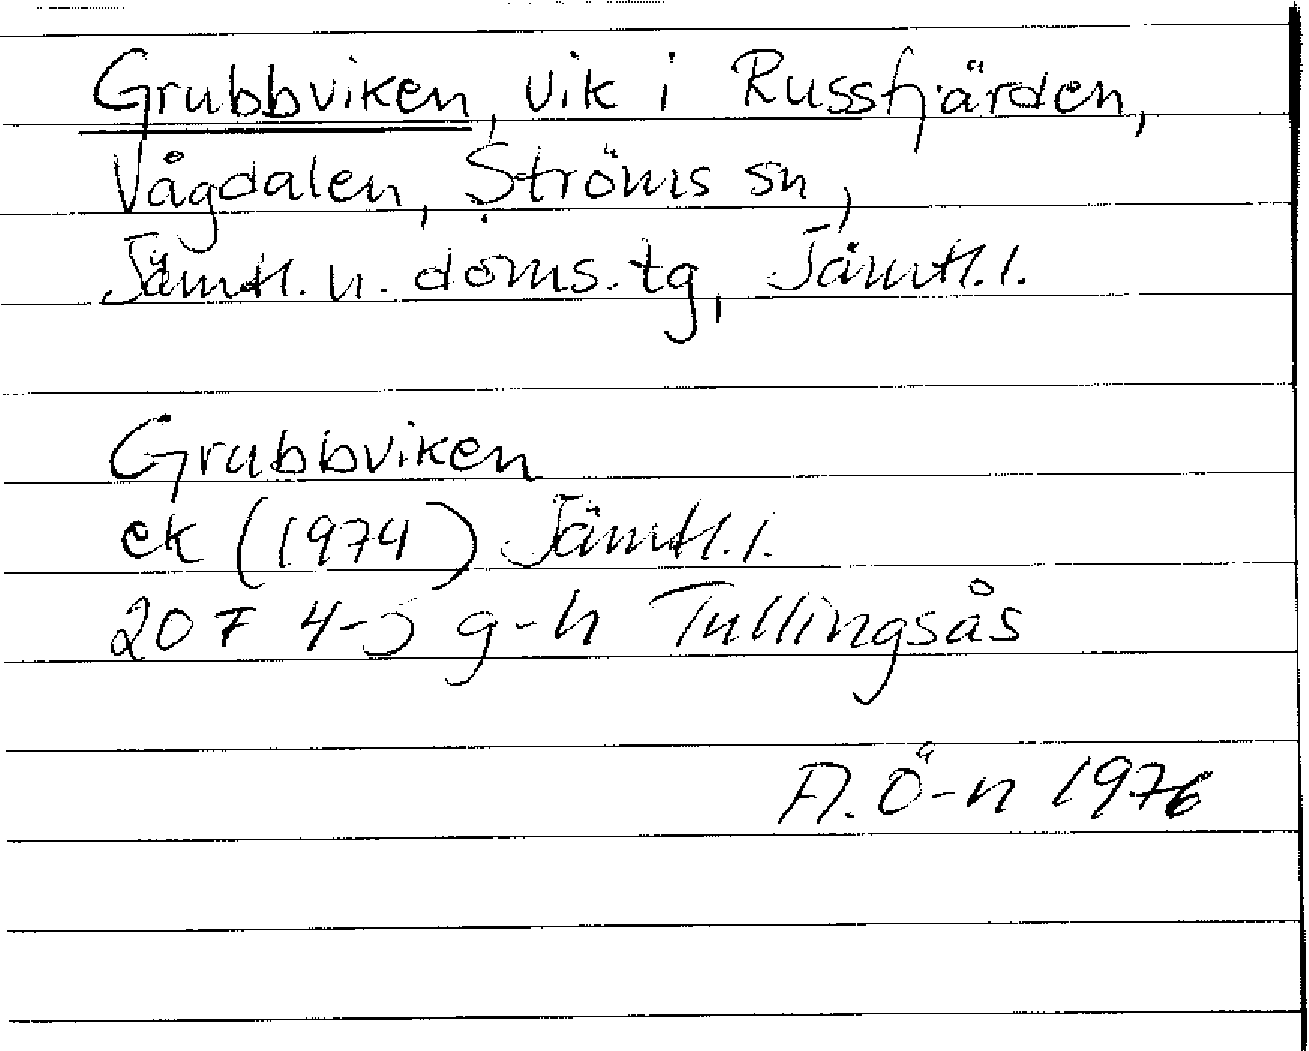 Grubbviken, vik i Russfjärden,
Vågdalen, Ströms sn,
Jämtl. n. doms. tg, Jämtl. l.
Grubbviken
ek (1974) Jämtl. l.
20 F 4-5 g-h Tullingsås
A. Ö-n 1976